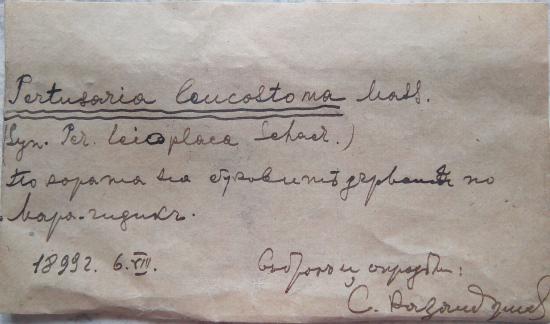 Pertusaria leucostoma Mass.
(Syn. Per. leioplaca Schaer.)
По кората на буковитѣ дървета по
Мара-гидикъ.
1899 г. 6. VIII.
Събралъ и опредѣл:
С.